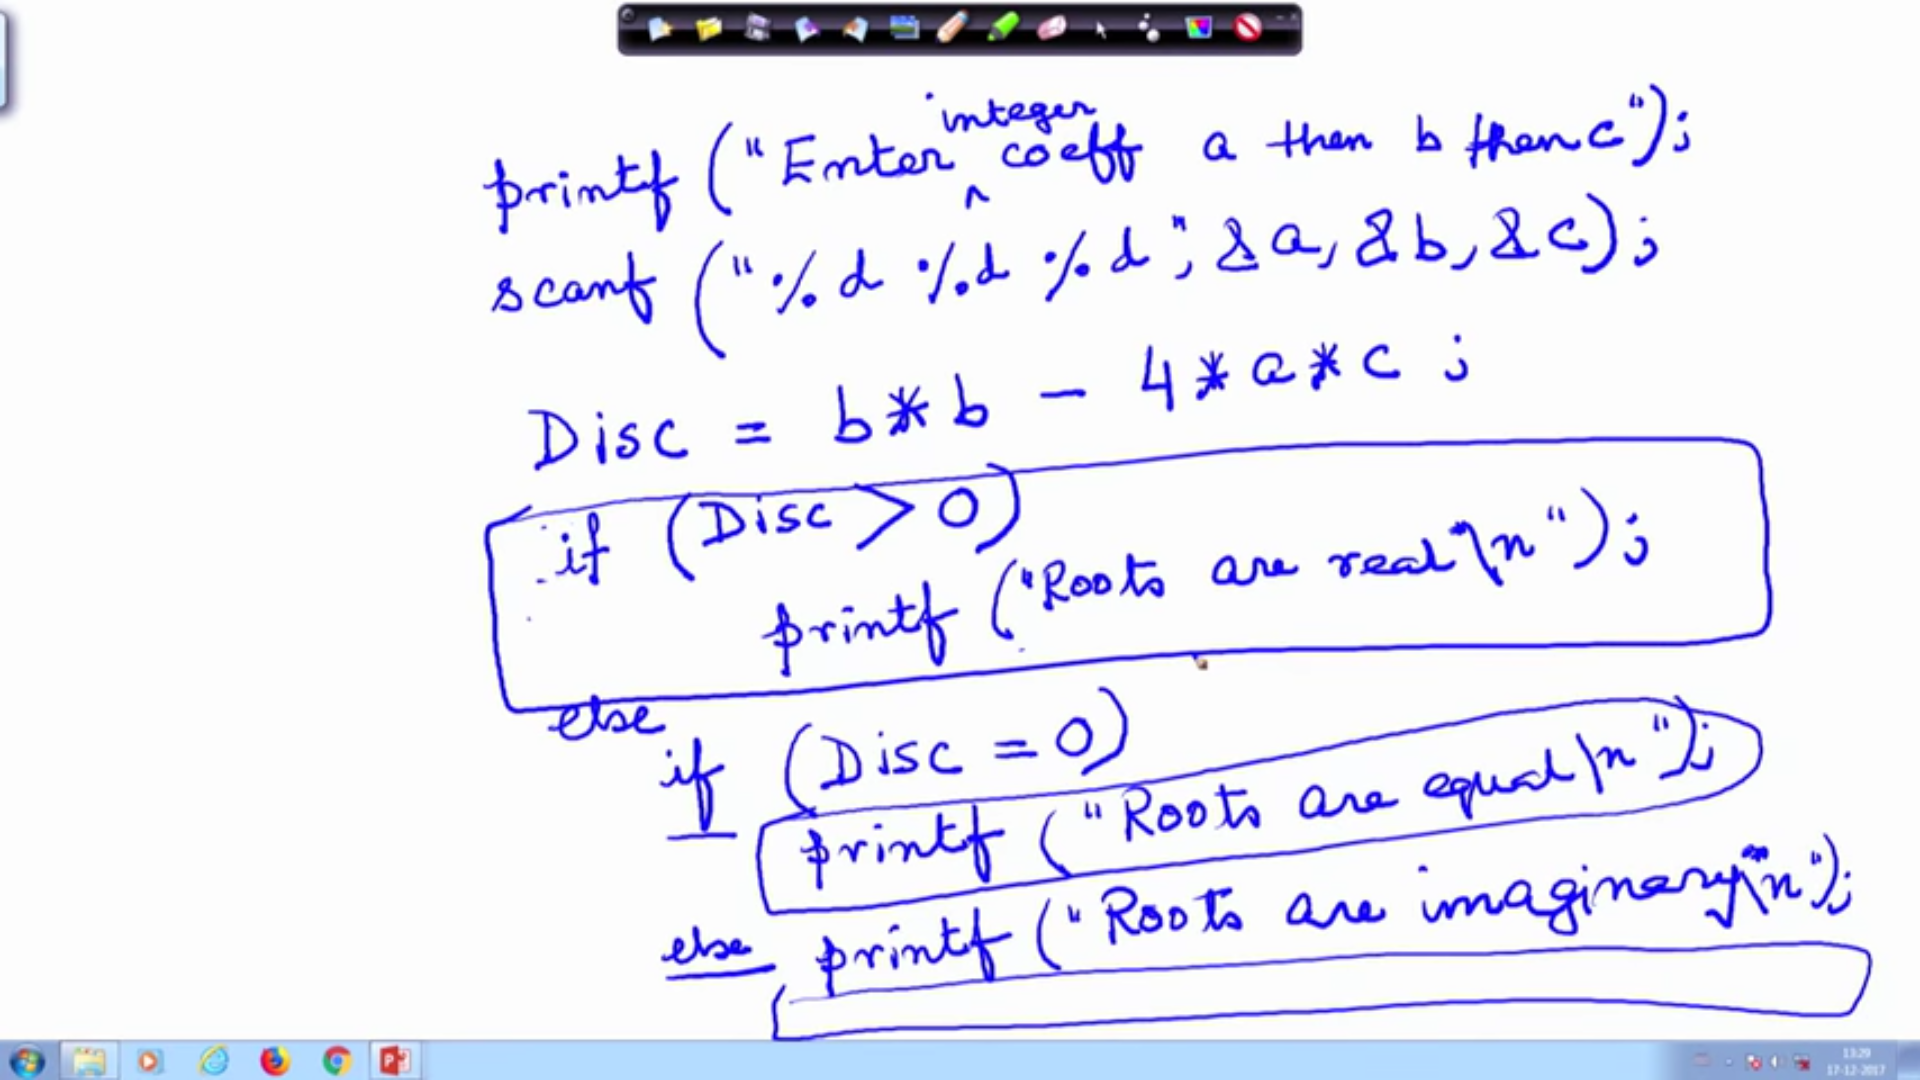 integer
printf ("Enter ^ coeff a then b then c");
scanf ("%d %d %d", &a, &b, &c);
Disc = b*b - 4*a*c ;
if (Disc > 0)
printf ("Roots are real\n");
else
if (Disc = 0)
printf ("Roots are equal\n");
else printf ("Roots are imaginary\n");
13:29
17-12-2017